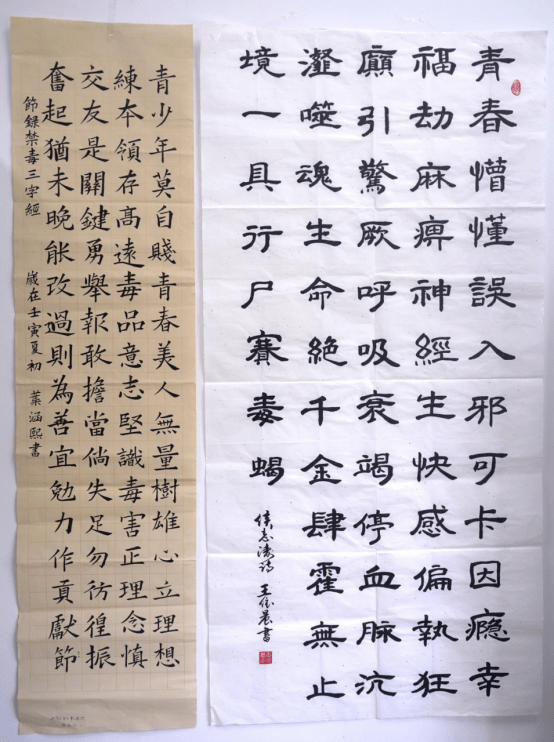 青春懵懂誤入邪可卡因瘾幸
福劫麻痹神經生快感偏執狂
癲引驚厥呼吸衰竭停血脉沆
瀣噬魂生命絶千金肆霍無止
境一具行尸賽毒蝎
侯志濤詩 書
青少年莫自賤青春美人無量樹雄心立理想
練本領存高遠毒品意志堅識毒害正理念慎
交友是關鍵勇舉報敢擔當倘失足勿彷徨振
奮起猶未晚能改過則為善宜勉力作貢獻節
節録禁毒三字經 歲在壬寅夏初 葉涵熙書